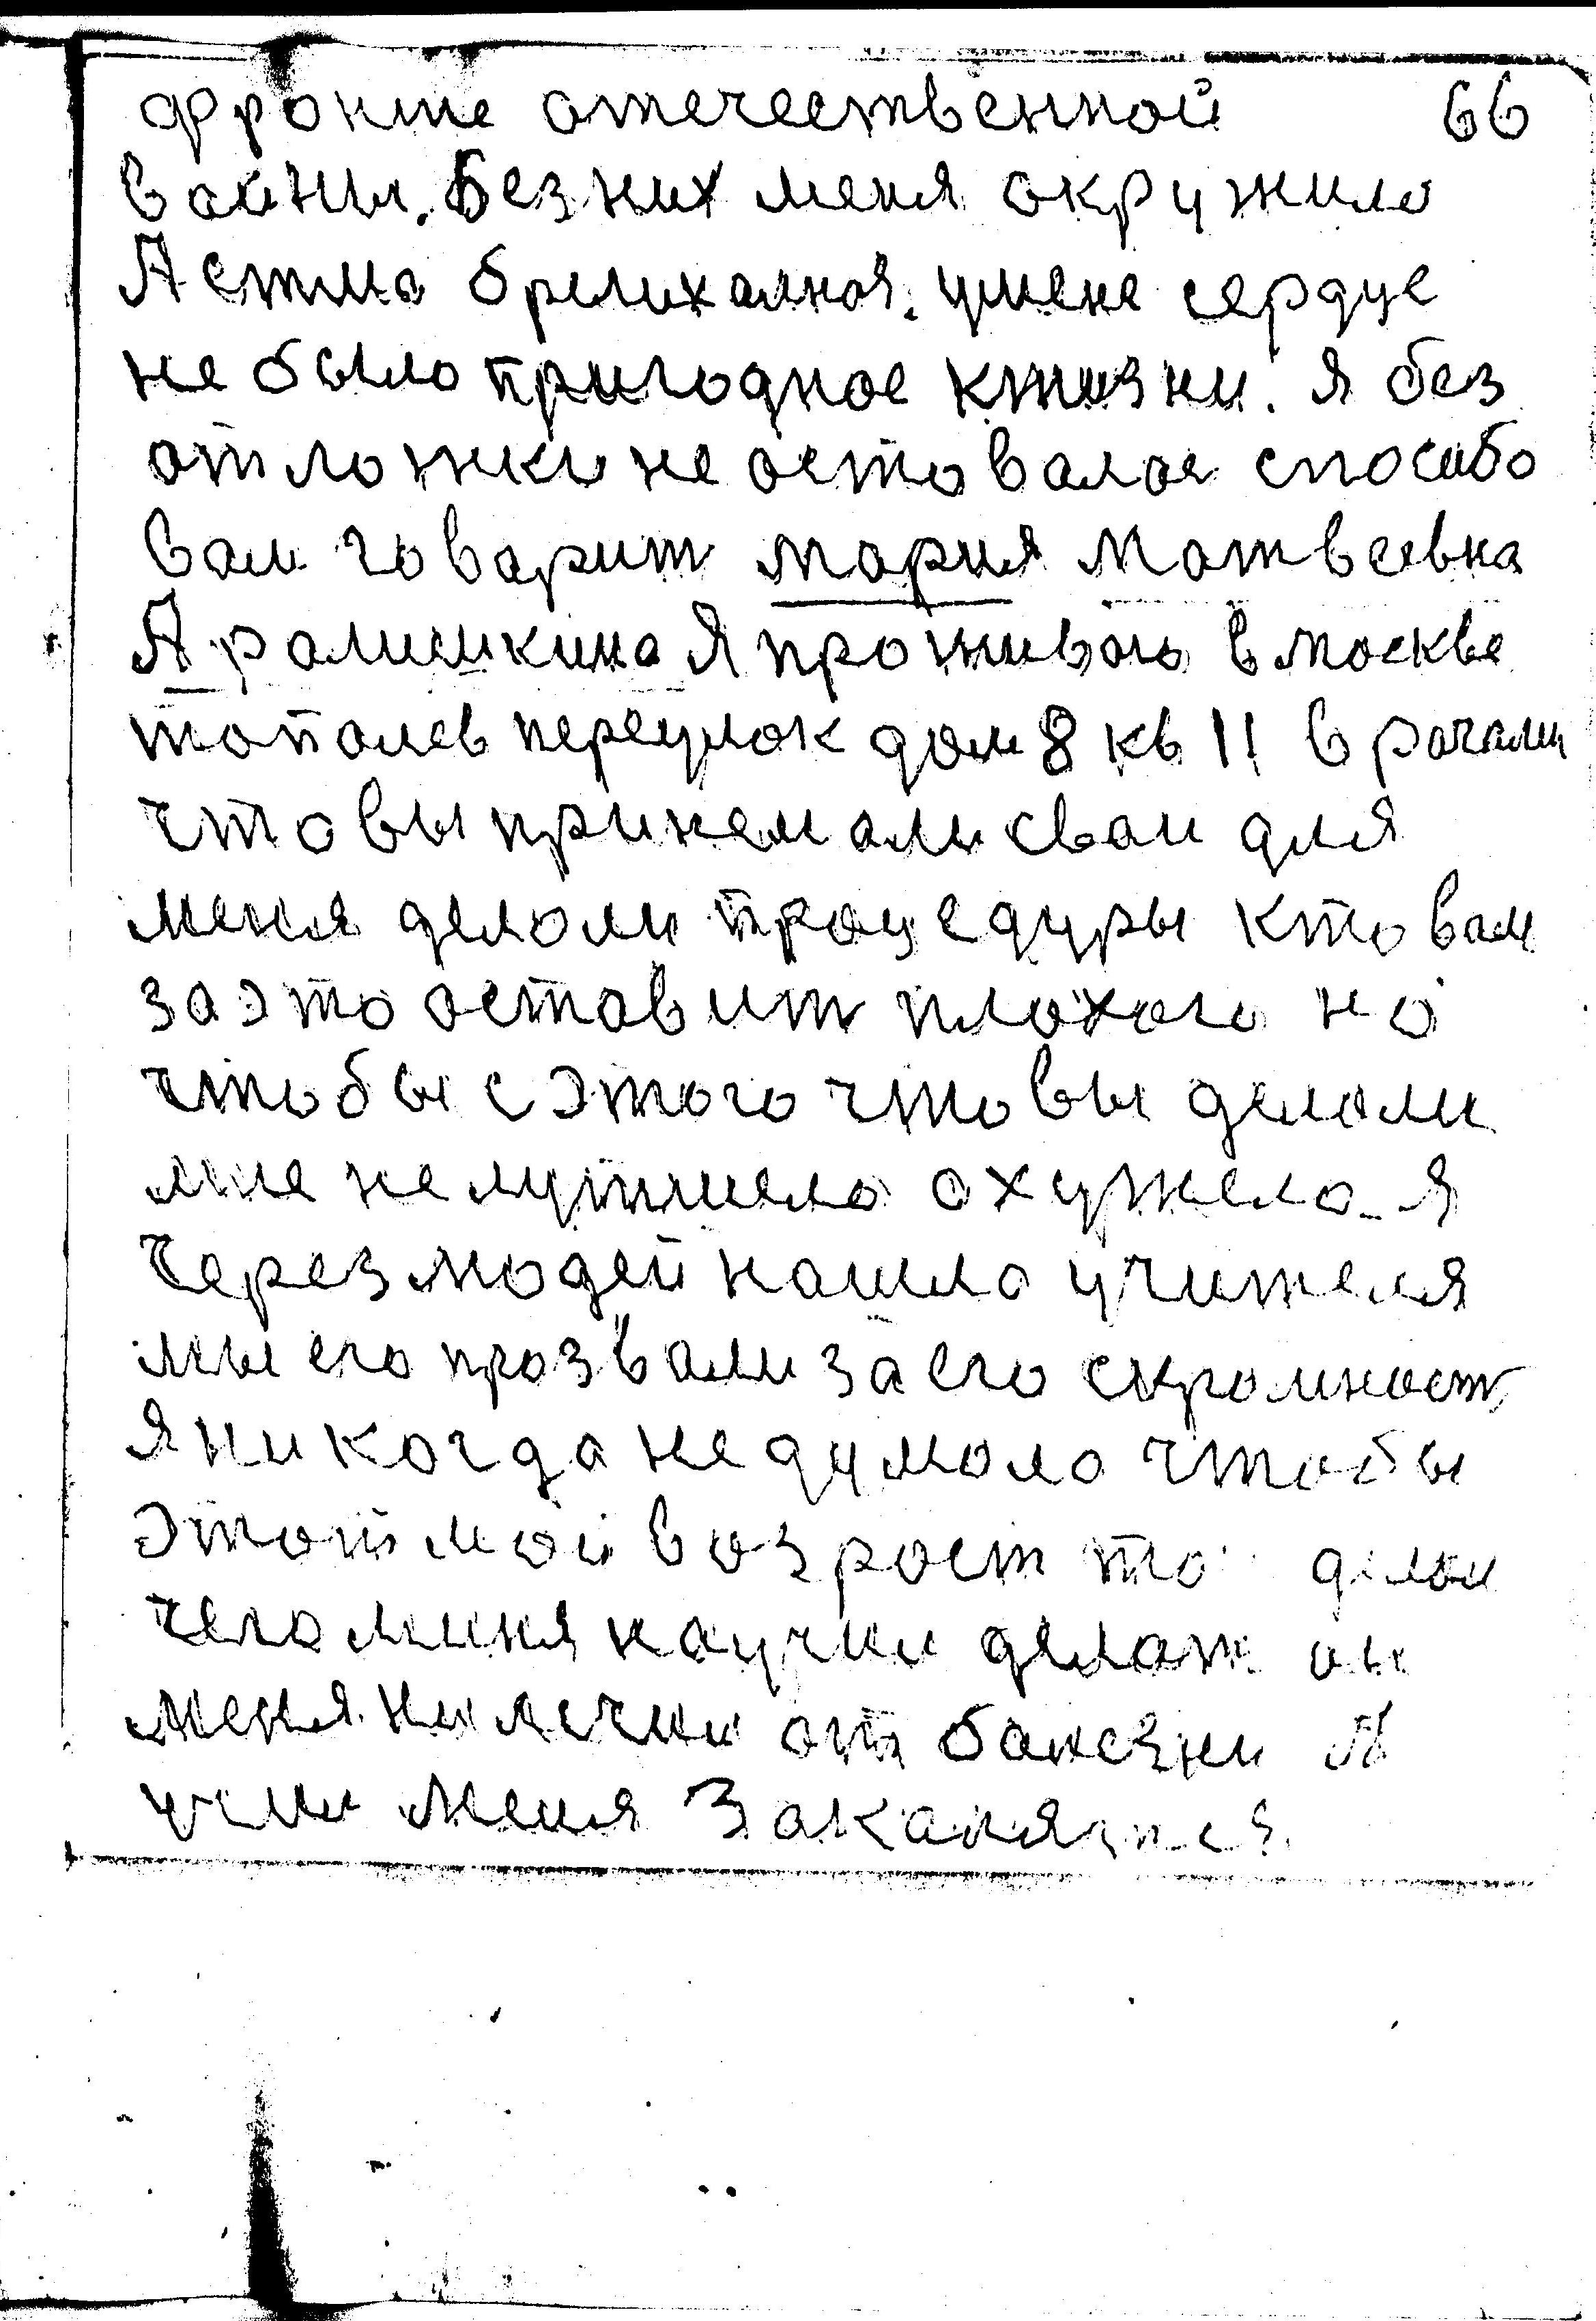 фронте отечественной 66
войны. Без них меня окружило
Астма брелихалная. умене сердце
не было пригодное кжизни. я без
отложки не оставалос спосибо
вам говарит мария Матвеевна
Арамешкина Я проживаю в москве
тополев переулок дом 8 кв 11 врачами
что вы принемали сваи для
меня делоли процедуры кто вам
за это оставит плохого но
чтобы с этого что вы делоли
мне нелутшело охужело - я
Через людей нашла учителя
мы его прозвали за его скромност
я никогда не думоло чтобы
этот мой возрост то делои
чего миня научил делат
меня ни лечил от болезни
учил меня Закалятся